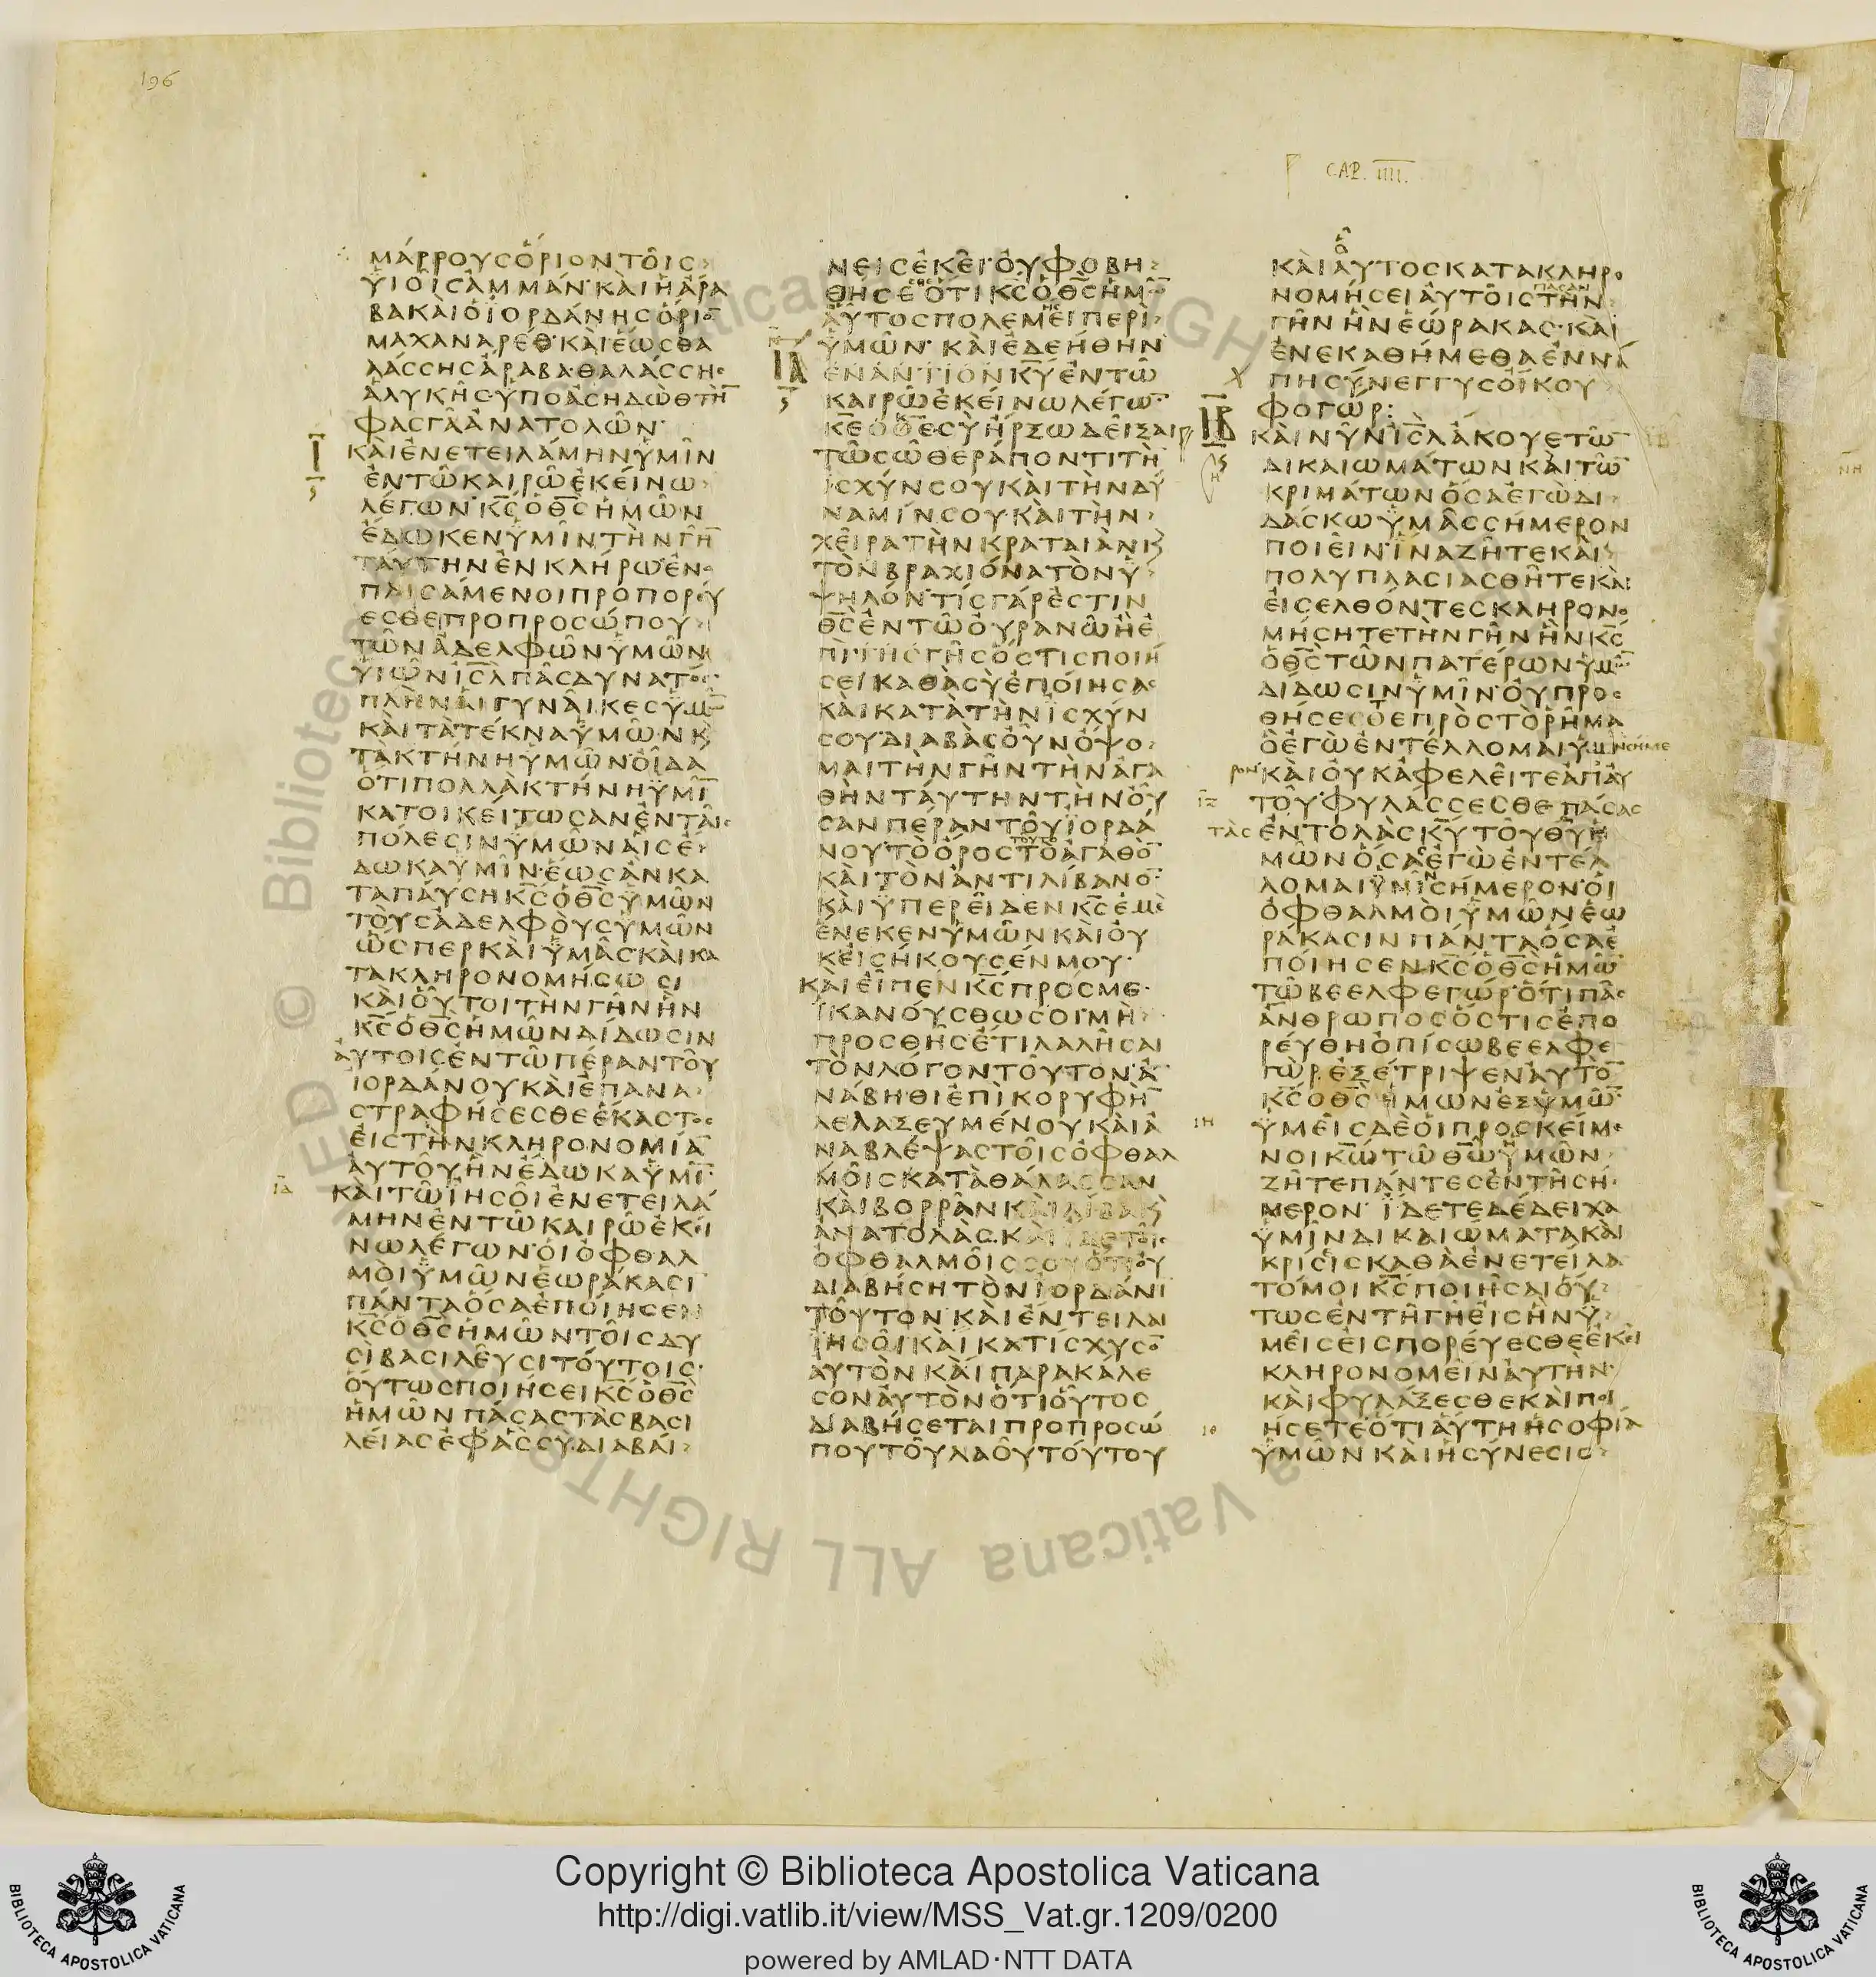 196
CAP. IIII.
ΜΑΡΡΟΥΣΟΡΙΟΝΤΟΙΣ
ΥΙΟΙΣΑΜΜΑΝ ΚΑΙΗΑΡΑ
ΒΑΚΑΙΟΙΟΡΔΑΝΗΣΟΡΙΟ̅
ΜΑΧΑΝΑΡΕΘ ΚΑΙΕΩΣΘΑ
ΛΑΣΣΗΣΑΡΑΒΑ ΘΑΛΑΣΣΗΣ
ΑΛΥΚΗΣΥΠΟΑΣΗΔΩΘΤΗ̅
ΦΑΣΓΑΑΝΑΤΟΛΩΝ
Ι
ΚΑΙΕΝΕΤΕΙΛΑΜΗΝΥΜΙΝ
ΕΝΤΩΚΑΙΡΩΕΚΕΙΝΩ
ΛΕΓΩΝ Κ̅Σ̅ΟΘ̅Σ̅ΗΜΩΝ
ΕΔΩΚΕΝΥΜΙΝΤΗΝΓΗ̅
ΤΑΥΤΗΝΕΝΚΛΗΡΩ ΕΝ
ΠΛΙΣΑΜΕΝΟΙΠΡΟΠΟΡΕΥ
ΕΣΘΕΠΡΟΠΡΟΣΩΠΟΥ
ΤΩΝΑΔΕΛΦΩΝΥΜΩΝ
ΥΙΩΝΙ̅Σ̅Λ̅ΠΑΣΔΥΝΑΤΟΣ
ΠΛΗΝΑΙΓΥΝΑΙΚΕΣΥΜΩ̅
ΚΑΙΤΑΤΕΚΝΑΥΜΩΝΚ
ΤΑΚΤΗΝΗΥΜΩΝ ΟΙΔΑ
ΟΤΙΠΟΛΛΑΚΤΗΝΗΥΜΙ̅
ΚΑΤΟΙΚΕΙΤΩΣΑΝΕΝΤΑΙΣ
ΠΟΛΕΣΙΝΥΜΩΝΑΙΣΕ
ΔΩΚΑΥΜΙΝ ΕΩΣΑΝΚΑ
ΤΑΠΑΥΣΗΚ̅Σ̅ΟΘ̅Σ̅ΥΜΩΝ
ΤΟΥΣΑΔΕΛΦΟΥΣΥΜΩΝ
ΩΣΠΕΡΚΑΙΥΜΑΣΚΑΙΚΑ
ΤΑΚΛΗΡΟΝΟΜΗΣΩΣΙ
ΚΑΙΟΥΤΟΙΤΗΝΓΗΝΗΝ
Κ̅Σ̅ΟΘ̅Σ̅ΗΜΩΝΔΙΔΩΣΙΝ
ΑΥΤΟΙΣΕΝΤΩΠΕΡΑΝΤΟΥ
ΙΟΡΔΑΝΟΥΚΑΙΕΠΑΝΑ
ΣΤΡΑΦΗΣΕΣΘΕΕΚΑΣΤΟΣ
ΕΙΣΤΗΝΚΛΗΡΟΝΟΜΙΑ̅
ΑΥΤΟΥΗΝΕΔΩΚΑΥΜΙ̅
ΚΑΙΤΩΙΗΣΟΙΕΝΕΤΕΙΛΑ
ΜΗΝΕΝΤΩΚΑΙΡΩΕΚΕΙ
ΝΩΛΕΓΩΝ ΟΙΟΦΘΑΛ
ΜΟΙΥΜΩΝΕΩΡΑΚΑΣΙ̅
ΠΑΝΤΑΟΣΑΕΠΟΙΗΣΕΝ
Κ̅Σ̅ΟΘ̅Σ̅ΗΜΩΝΤΟΙΣΔΥ
ΣΙΒΑΣΙΛΕΥΣΙΤΟΥΤΟΙΣ
ΟΥΤΩΣΠΟΙΗΣΕΙΚ̅Σ̅ΟΘ̅Σ̅
ΗΜΩΝΠΑΣΑΣΤΑΣΒΑΣΙ
ΛΕΙΑΣΕΦΑΣΣΥΔΙΑΒΑΙ
ΝΕΙΣΕΚΕΙ ΟΥΦΟΒΗ
ΘΗΣΕΣΘΕΟΤΙΚ̅Σ̅ΟΘ̅Σ̅ΗΜΩ̅
ΑΥΤΟΣΠΟΛΕΜΗΣΕΙΠΕΡΙ
ΙΑ
ΥΜΩΝ ΚΑΙΕΔΕΗΘΗΝ
ΕΝΑΝΤΙΟΝΚ̅Υ̅ΕΝΤΩ
ΚΑΙΡΩΕΚΕΙΝΩΛΕΓΩ̅
Κ̅Ε̅ΟΘ̅Ε̅ΣΥΗΡΞΩΔΕΙΞΑΙ
ΤΩΣΩΘΕΡΑΠΟΝΤΙΤΗ̅
ΙΣΧΥΝΣΟΥΚΑΙΤΗΝΔΥ
ΝΑΜΙΝΣΟΥΚΑΙΤΗΝ
ΧΕΙΡΑΤΗΝΚΡΑΤΑΙΑΝΚ
ΤΟΝΒΡΑΧΙΟΝΑΤΟΝΥ
ΨΗΛΟΝ ΤΙΣΓΑΡΕΣΤΙΝ
Θ̅Σ̅ΕΝΤΩΟΥΡΑΝΩΗΕ
ΠΙΤΗΣΓΗΣΟΣΤΙΣΠΟΙΗ
ΣΕΙΚΑΘΑΣΥΕΠΟΙΗΣΑΣ
ΚΑΙΚΑΤΑΤΗΝΙΣΧΥΝ
ΣΟΥ ΔΙΑΒΑΣΟΥΝΟΨΟ
ΜΑΙΤΗΝΓΗΝΤΗΝΑΓΑ
ΘΗΝΤΑΥΤΗΝΤΗΝΟΥ
ΣΑΝΠΕΡΑΝΤΟΥΙΟΡΔΑ
ΝΟΥΤΟΟΡΟΣΤΟΥΤΟΤΟΑΓΑΘΟ̅
ΚΑΙΤΟΝΑΝΤΙΛΙΒΑΝΟ̅
ΚΑΙΥΠΕΡΕΙΔΕΝΚ̅Σ̅ΕΜΕ
ΕΝΕΚΕΝΥΜΩΝΚΑΙΟΥ
ΚΕΙΣΗΚΟΥΣΕΝΜΟΥ
ΚΑΙΕΙΠΕΝΚ̅Σ̅ΠΡΟΣΜΕ
ΙΚΑΝΟΥΣΘΩΣΟΙ ΜΗ
ΠΡΟΣΘΗΣΕΤΙΛΑΛΗΣΑΙ
ΤΟΝΛΟΓΟΝΤΟΥΤΟΝ Α
ΝΑΒΗΘΙΕΠΙΚΟΡΥΦΗ̅
ΛΕΛΑΞΕΥΜΕΝΟΥΚΑΙΑ
ΝΑΒΛΕΨΑΣΤΟΙΣΟΦΘΑΛ
ΜΟΙΣΚΑΤΑΘΑΛΑΣΣΑΝ
ΚΑΙΒΟΡΡΑΝΚΑΙΛΙΒΑΚ
ΑΝΑΤΟΛΑΣ ΚΑΙΙΔΕΤΟΙΣ
ΟΦΘΑΛΜΟΙΣΣΟΥΟΤΙΟΥ
ΔΙΑΒΗΣΗΤΟΝΙΟΡΔΑΝΗ̅
ΤΟΥΤΟΝ ΚΑΙΕΝΤΕΙΛΑΙ
ΙΗΣΟΙΚΑΙΚΑΤΙΣΧΥΣΟ̅
ΑΥΤΟΝΚΑΙΠΑΡΑΚΑΛΕ
ΣΟΝΑΥΤΟΝΟΤΙΟΥΤΟΣ
ΔΙΑΒΗΣΕΤΑΙΠΡΟΠΡΟΣΩ
ΠΟΥΤΟΥΛΑΟΥΤΟΥΤΟΥ
ΚΑΙΑΥΤΟΣΚΑΤΑΚΛΗΡΟ
ΝΟΜΗΣΕΙΑΥΤΟΙΣΠΑΣΑΝΤΗΝ
ΓΗΝΗΝΕΩΡΑΚΑΣ ΚΑΙ
ΕΝΕΚΑΘΗΜΕΘΑΕΝΝΑ
ΠΗΣΥΝΕΓΓΥΣΟΙΚΟΥ
ΦΟΓΩΡ:
ΙΒ
ΚΑΙΝΥΝΙ̅Σ̅Λ̅ΑΚΟΥΕΤΩ̅
ΔΙΚΑΙΩΜΑΤΩΝΚΑΙΤΩ̅
ΚΡΙΜΑΤΩΝΟΣΑΕΓΩΔΙ
ΔΑΣΚΩΥΜΑΣΣΗΜΕΡΟΝ
ΠΟΙΕΙΝ ΙΝΑΖΗΤΕΚΑΙ
ΠΟΛΥΠΛΑΣΙΑΣΘΗΤΕΚΑΙ
ΕΙΣΕΛΘΟΝΤΕΣΚΛΗΡΟΝΟ
ΜΗΣΗΤΕΤΗΝΓΗΝΗΝΚ̅Σ̅
ΟΘ̅Σ̅ΤΩΝΠΑΤΕΡΩΝΥΜΩ̅
ΔΙΔΩΣΙΝΥΜΙΝ ΟΥΠΡΟΣ
ΘΗΣΕΣΘΕΠΡΟΣΤΟΡΗΜΑ
ΟΕΓΩΕΝΤΕΛΛΟΜΑΙΥΜΙΝΣΗΜΕ
ΡΟΝ ΚΑΙΟΥΚΑΦΕΛΕΙΤΕΑΠΑΥ
ΤΟΥ ΦΥΛΑΣΣΕΣΘΕΠΑΣΑΣ
ΤΑΣΕΝΤΟΛΑΣΚ̅Υ̅ΤΟΥΘ̅Υ̅Η
ΜΩΝΟΣΑΕΓΩΕΝΤΕΛ
ΛΟΜΑΙΥΜΙΝΣΗΜΕΡΟΝ ΟΙ
ΟΦΘΑΛΜΟΙΥΜΩΝΕΩ
ΡΑΚΑΣΙΝΠΑΝΤΑΟΣΑΕ
ΠΟΙΗΣΕΝΚ̅Σ̅ΟΘ̅Σ̅ΗΜΩ̅
ΤΩΒΕΕΛΦΕΓΩΡ ΟΤΙΠΑΣ
ΑΝΘΡΩΠΟΣΟΣΤΙΣΕΠΟ
ΡΕΥΘΗΟΠΙΣΩΒΕΕΛΦΕ
ΓΩΡΕΞΕΤΡΙΨΕΝΑΥΤΟ̅
Κ̅Σ̅ΟΘ̅Σ̅ΗΜΩΝΕΞΥΜΩ̅
ΥΜΕΙΣΔΕΟΙΠΡΟΣΚΕΙΜΕ
ΝΟΙΚ̅Ω̅ΤΩΘ̅Ω̅ΥΜΩΝ
ΖΗΤΕΠΑΝΤΕΣΕΝΤΗΣΗ
ΜΕΡΟΝ ΙΔΕΤΕΔΕΔΕΙΧΑ
ΥΜΙΝΔΙΚΑΙΩΜΑΤΑΚΑΙ
ΚΡΙΣΙΣΚΑΘΑΕΝΕΤΕΙΛΑ
ΤΟΜΟΙΚ̅Σ̅ΠΟΙΗΣΑΙΟΥ
ΤΩΣΕΝΤΗΓΗΕΙΣΗΝΥ
ΜΕΙΣΕΙΣΠΟΡΕΥΕΣΘΕΕΚΕΙ
ΚΛΗΡΟΝΟΜΕΙΝΑΥΤΗΝ
ΚΑΙΦΥΛΑΞΕΣΘΕΚΑΙΠΟΙ
ΗΣΕΤΕΟΤΙΑΥΤΗΗΣΟΦΙΑ
ΥΜΩΝΚΑΙΗΣΥΝΕΣΙΣ
Copyright © Biblioteca Apostolica Vaticana
http://digi.vatlib.it/view/MSS_Vat.gr.1209/0200
powered by AMLAD·NTT DATA
BIBLIOTECA APOSTOLICA VATICANA
BIBLIOTECA APOSTOLICA VATICANA